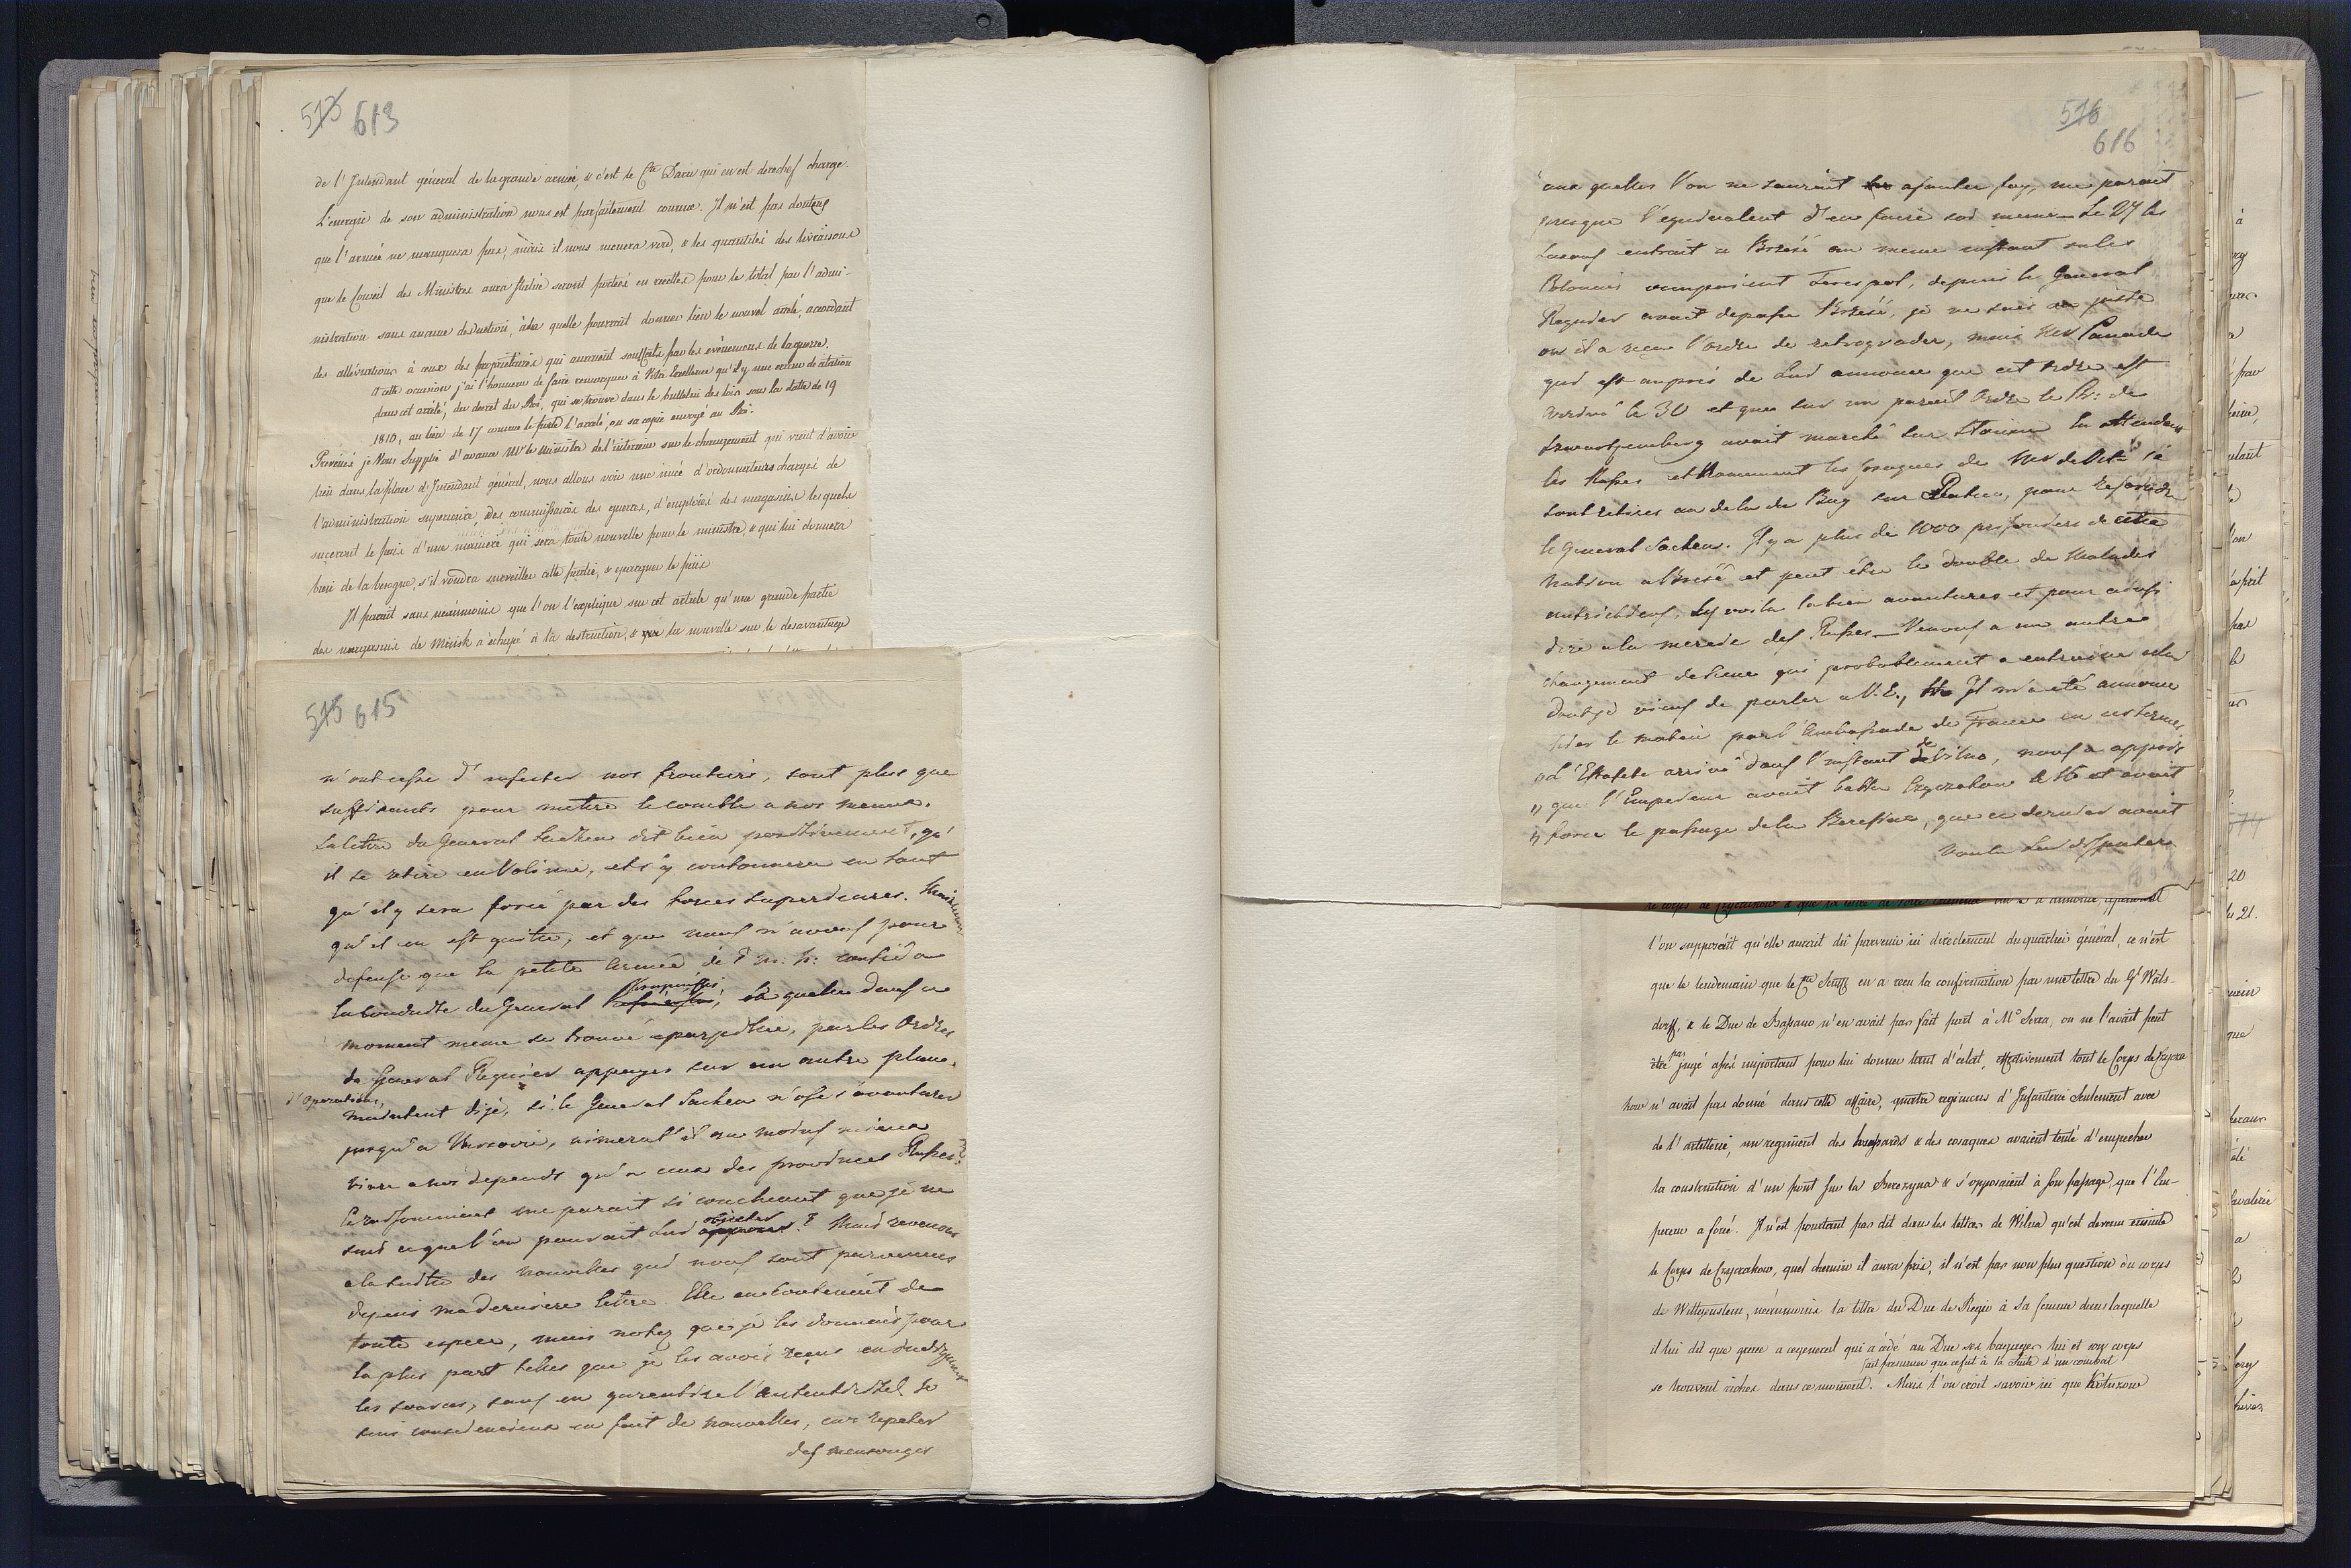 513 613
de l'Intendant général de la grande armée, & c'est le Cte Daru qui en est derechef chargé.
L'energie de son administration nous est parfaitement connue. Il n'est pas douteux
que l'armée ne manquera pas, mais il nous menera verd, & les quantités des livraisons
que le Conseil des Ministres aura statué seront portées en recettes pour le total par l'admi-
nistration sans aucune deduction, à la quelle pourrait donner lieu le nouvel arrêté, accordant
des allévations à ceux des proprietaires qui auraient soufferts par les evénemens de la guerre.
A cette occasion j'ai l'honneur de faire remarquer à Votre Excellence qu'il y une erreur de citation
dans cet arrêté, du decret du Roi, qui se trouve dans le bulletin des lois sous la date de 19
1810, au lieu de 17 comme le porte l'arrêté, ou sa copie envoyé au Roi.
Prevenés je Vous supplie d'avance Mr le Ministre de l'interieur sur le changement qui vient d'avoir
lieu dans la place d'Intendant général, nous allons voir une nuée d'ordonnateurs chargés de
l'administration superieure, des commissaires des guerres, d'employés des magasins lesquels
suceront le pais d'une maniere qui sera toute nouvelle pour le ministre, & qui lui donnera
bien de la besogne, s'il voudra surveiller cette partie, & epargner le païs
Il parait sans neanmoins que l'on l'explique sur cet article qu'une grande partie
des magasins de Minsk a échapé à la destruction, & que la nouvelle sur le desavantage
515 615
n'ont cessé d'infester nos frontieres, sont plus que
suffisants pour mettre le comble a nos meaux.
La lettre du General Sacken dit bien positivement, qu'
il se retire en Volinie, et s'y cantonnera en tant
qu'il y sera forcé par des forces superieures. Mais
qu'il en est quitte, et que nous n'avons pour
defense que la petite Armée de confiée a
la conduite du General Kosinski, la quelle dans ce
moment meme se trouve eparpillée, par les Ordres
du General Regnier appuyes sur un autre plane
d'Operations,
maintent dije, si le General Sacken n'ose s'avanturer
jusqu'a Varsovie, aimerat'il au moins mieux
vivre a nos depends qu'a ceux des provinces Russes?
Ce raisonnement me parait si concluant que je ne
sais ce que l'on pourrait lui objecter? Mais revenons
a la suite des nouvelles qui nous sont parvenues
depuis ma derniere lettre. Elle en contenait de
toute espece, mais notez que je les donnais pour
la plus part telles que je les avois reçues en indiquant
les sources, sans en garantire l'autentisitet. Je
suis consciencieux en fait de nouvelles, car repeter
des mensonges
516
616
aux quelles l'on ne saurait ajouter foy, me parait
presque l'equivalent d'en faire soi meme. Le 27 les
Saxons entrait a Brzesc au meme instant ou les
Polonais occupaient Terespol, depuis le General
Regnier avait depassé Brzesc, je ne sais au juste
ou il a reçu l'ordre de retrograder, mais
qui est aupres de lui annonce que cet ordre est
arrivé le 30 et que sur un pareil Ordre le Pr: de
Schwartzemberg avait marché sur Slonim. En attendant
les Russes et nommement les
sont retirés au dela du Bug sur Ratno, pour rejoindre
le General Sacken. Il y a plus de 1000 prisonniers de cette
nation a Brzesc et peut être le double de Malades
autrichiens. Les voila la bien avanturés et pour ainsi
dire a la merci des Russes — Venons a un autre
changement de scene qui probablement a entrainé celui
dont je viens de parler a V. E., Il m'a eté annoncé
hier le matin par l'Ambassade de France en ces termes
» L'Estafette arrivé dans l'instant de Vilna, nous a appris
» que l'Empereur avait battu Czyczakow le 28 et avait
» forcé le passage de la Beresina, que ce dernier avait
voulu lui disputer.
l'on supposait qu'elle aurait dû parvenir ici directement du quartier général, ce n'est
que le lendemain que le Cte en a reçu la confirmation par une lettre du Gl Wals-
dorff, & le Duc de Bassano n'en avait pas fait part à Mr Serra, on ne l'avait peut
être pas jugé assés important pour lui donner tant d'éclat, effectivement tout le Corps de Czycza
kow n'avait pas donné dans cette affaire, quatre regimens d'Infanterie seulement avec
de l'artillerie, un regiment des houssards & des cosaques avaient tenté d'empecher
la construction d'un pont sur la Berezyna & s'opposaient à son passage, que l'Em-
pereur a forcé. Il n'est pourtant pas dit dans les lettres de Wilna qu'est devenu ensuite
le Corps de Czyczakow, quel chemin il aura pris, il n'est pas non plus question du corps
de Wittgenstein, néanmoins la lettre du Duc de Regio à sa femme dans laquelle
il lui dit que grace a ce general qui a cédé au Duc ses bagages lui et son corps
fait presumer que ce fut à la suite d'un combat
se trouvent riches dans ce moment. Mais l'on croit savoir ici que Kutusow